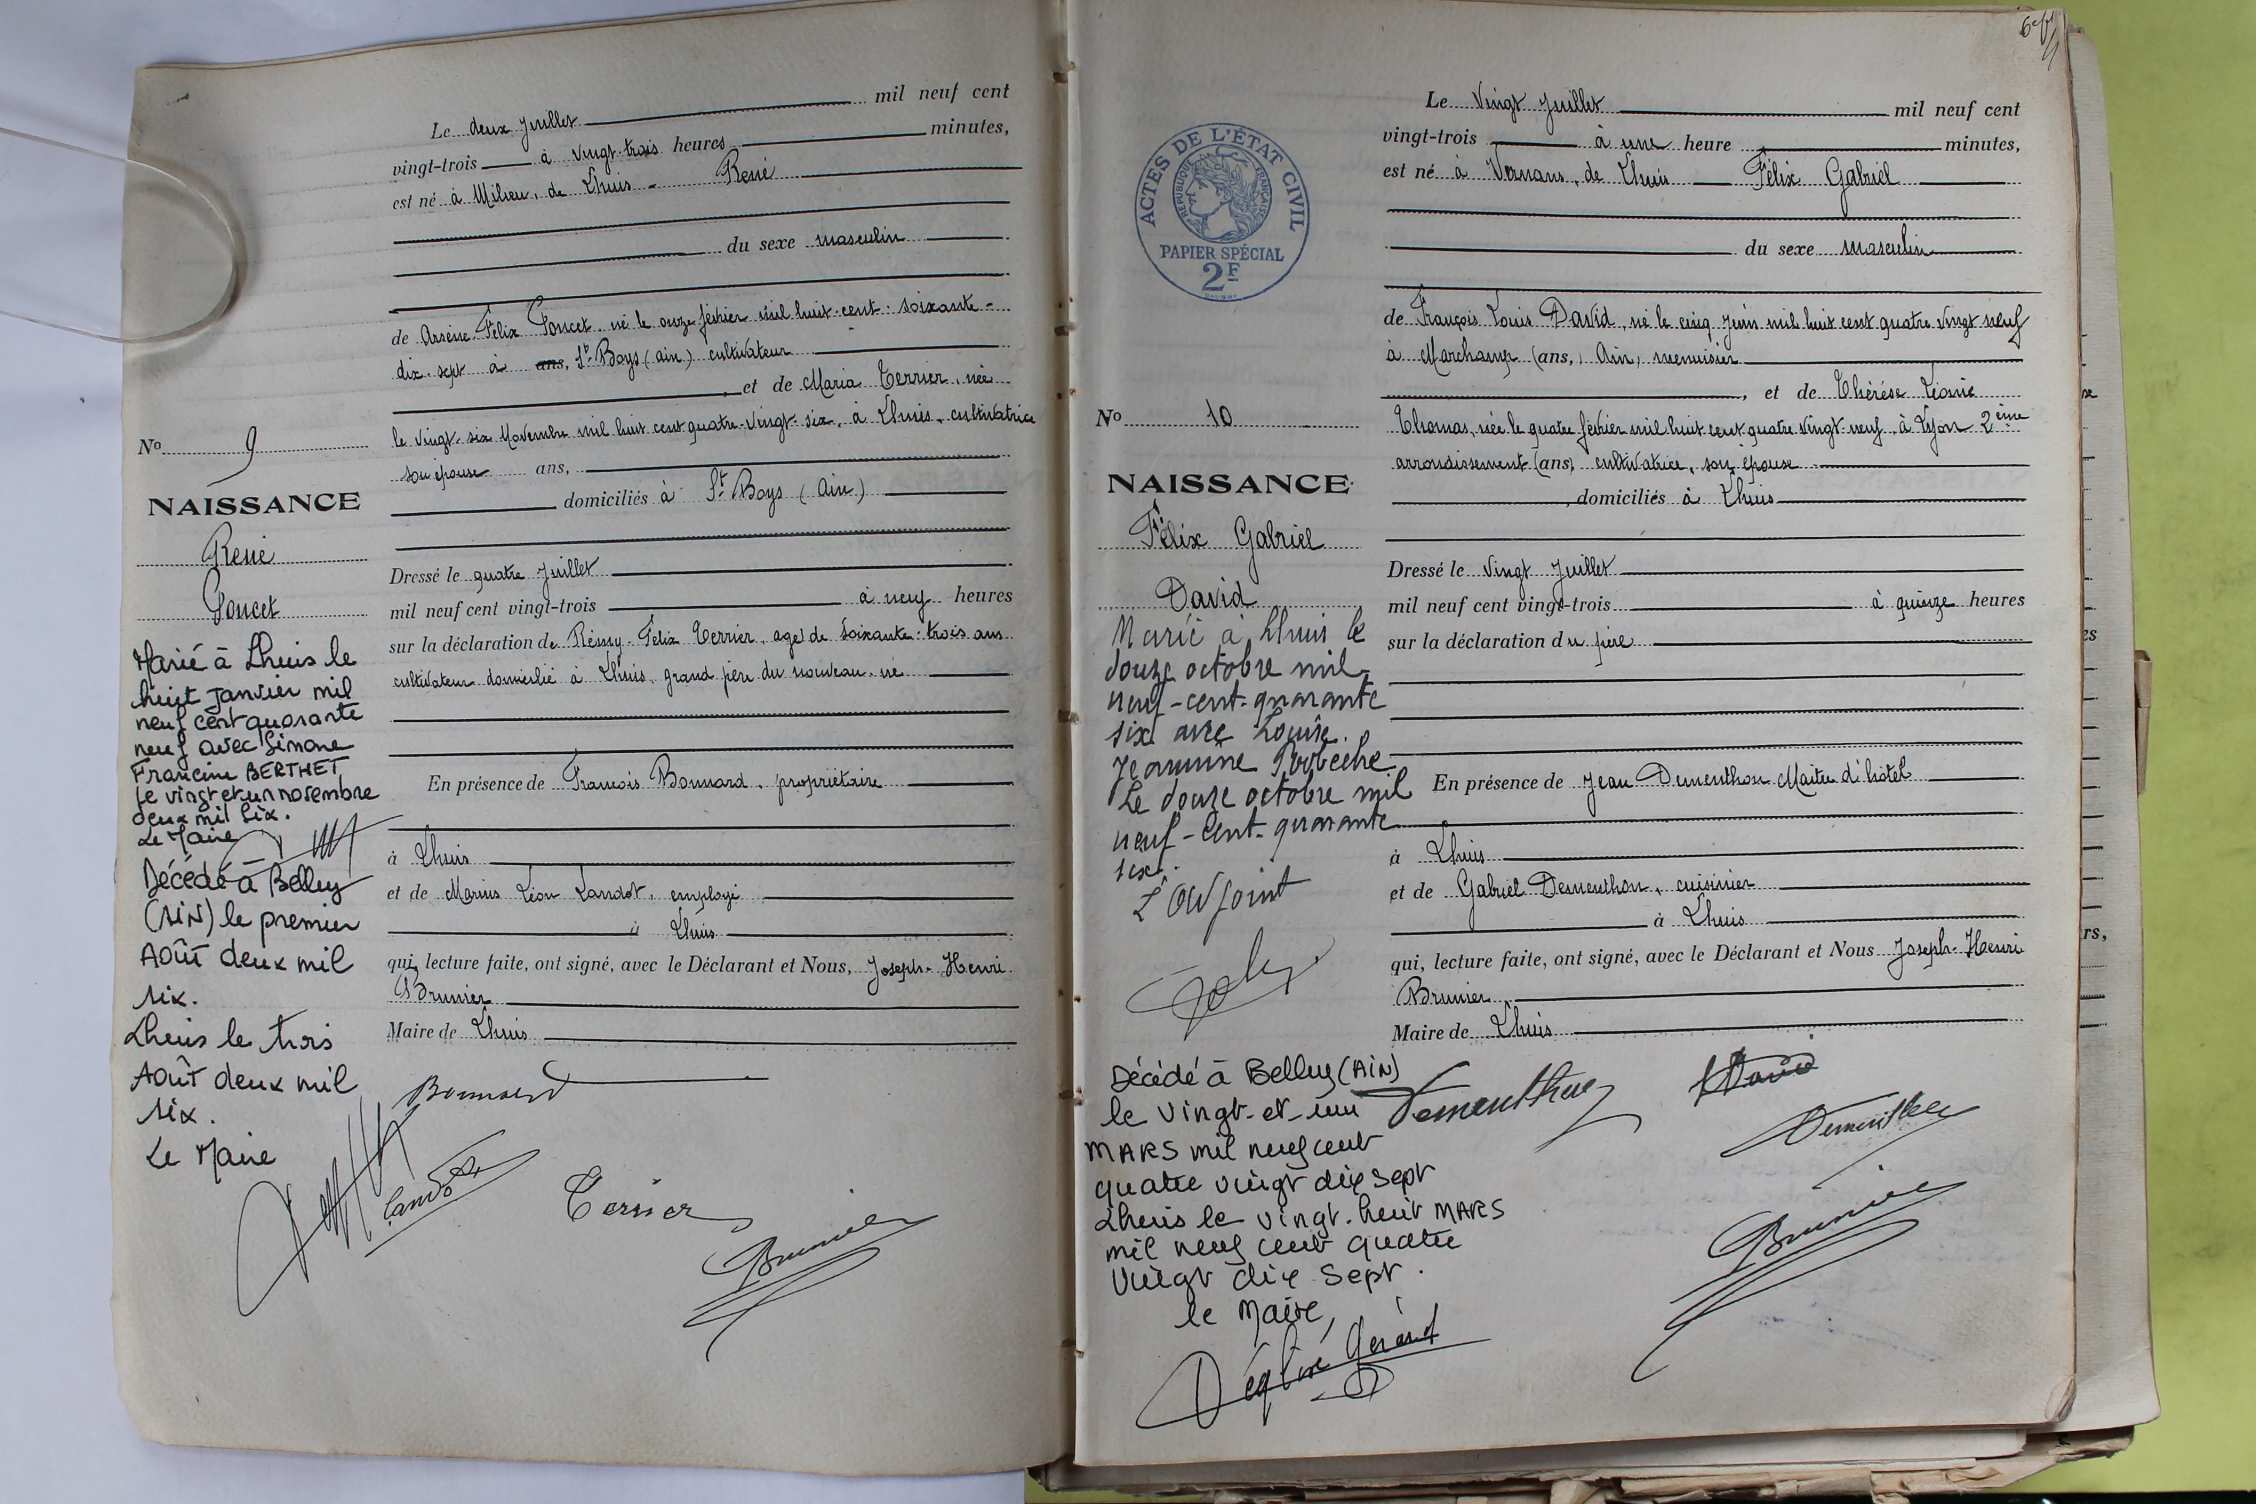 Le deux Juillet mil neuf cent
vingt-trois à vingt-trois heures minutes,
est né à Milieu, de Lhuis - René
du sexe masculin
de Arsène Félix Poncet, né le onze février mil huit-cent-soixante-
dix-sept à ans, St Boys (Ain) cultivateur
et de Maria Terrier, née
le vingt-six Novembre mil huit cent quatre-vingt-six, à Lhuis, cultivatrice
son épouse ans,
domiciliés à St Boys (Ain)
Dressé le quatre Juillet
mil neuf cent vingt-trois à neuf heures
sur la déclaration de Rémy-Félix Terrier, agé de soixante-trois ans
cultivateur domicilié à Lhuis, grand père du nouveau-né
En présence de François Bonnard, propriétaire
à Lhuis
et de Marius Léon Landot, employé
à Lhuis
qui, lecture faite, ont signé, avec le Déclarant et Nous, Joseph-Henri
Brunier
Maire de Lhuis
Bonnard
Landot
Terrier
Brunier
No 9
NAISSANCE
René
Poncet
Marié à Lhuis le
huit janvier mil
neuf cent quarante
neuf avec Simone
Francine BERTHET
le vingt et un novembre
deux mil six.
Le Maire
Décédé à Belley
(AIN) le premier
Août deux mil
six.
Lhuis le trois
Août deux mil
six.
Le Maire
ACTES DE L'ÉTAT CIVIL
RÉPUBLIQUE FRANÇAISE
PAPIER SPÉCIAL
2F
Le Vingt Juillet mil neuf cent
vingt-trois à une heure minutes,
est né à Vernans, de Lhuis Félix Gabriel
du sexe masculin
de François Louis David, né le cinq juin mil huit cent quatre vingt neuf
à Marchamp (ans, Ain) menuisier
, et de Thérèse Léonie
Thomas, née le quatre février mil huit cent quatre vingt-neuf, à Lyon 2ème
arrondissement (ans, cultivatrice, son épouse
domiciliés à Lhuis
Dressé le Vingt Juillet
mil neuf cent vingt-trois à quinze heures
sur la déclaration du père
En présence de Jean Dementhon Maitre d'hôtel
à Lhuis
et de Gabriel Dementhon, cuisinier
à Lhuis
qui, lecture faite, ont signé, avec le Déclarant et Nous Joseph-Henri
Brunier
Maire de Lhuis
Dementhon
David
Dementhon
Brunier
No 10
NAISSANCE
Félix Gabriel
David
Marié à Lhuis le
douze octobre mil
neuf-cent-quarante
six avec Louise
Jeannine
Le douze octobre mil
neuf-cent-quarante
six.
L'Adjoint
Décédé à Belley (AIN)
le vingt-et-un
MARS mil neuf cent
quatre vingt dix sept
Lhuis le vingt-huit MARS
mil neuf cent quatre
vingt dix sept.
le Maire,
Gérard